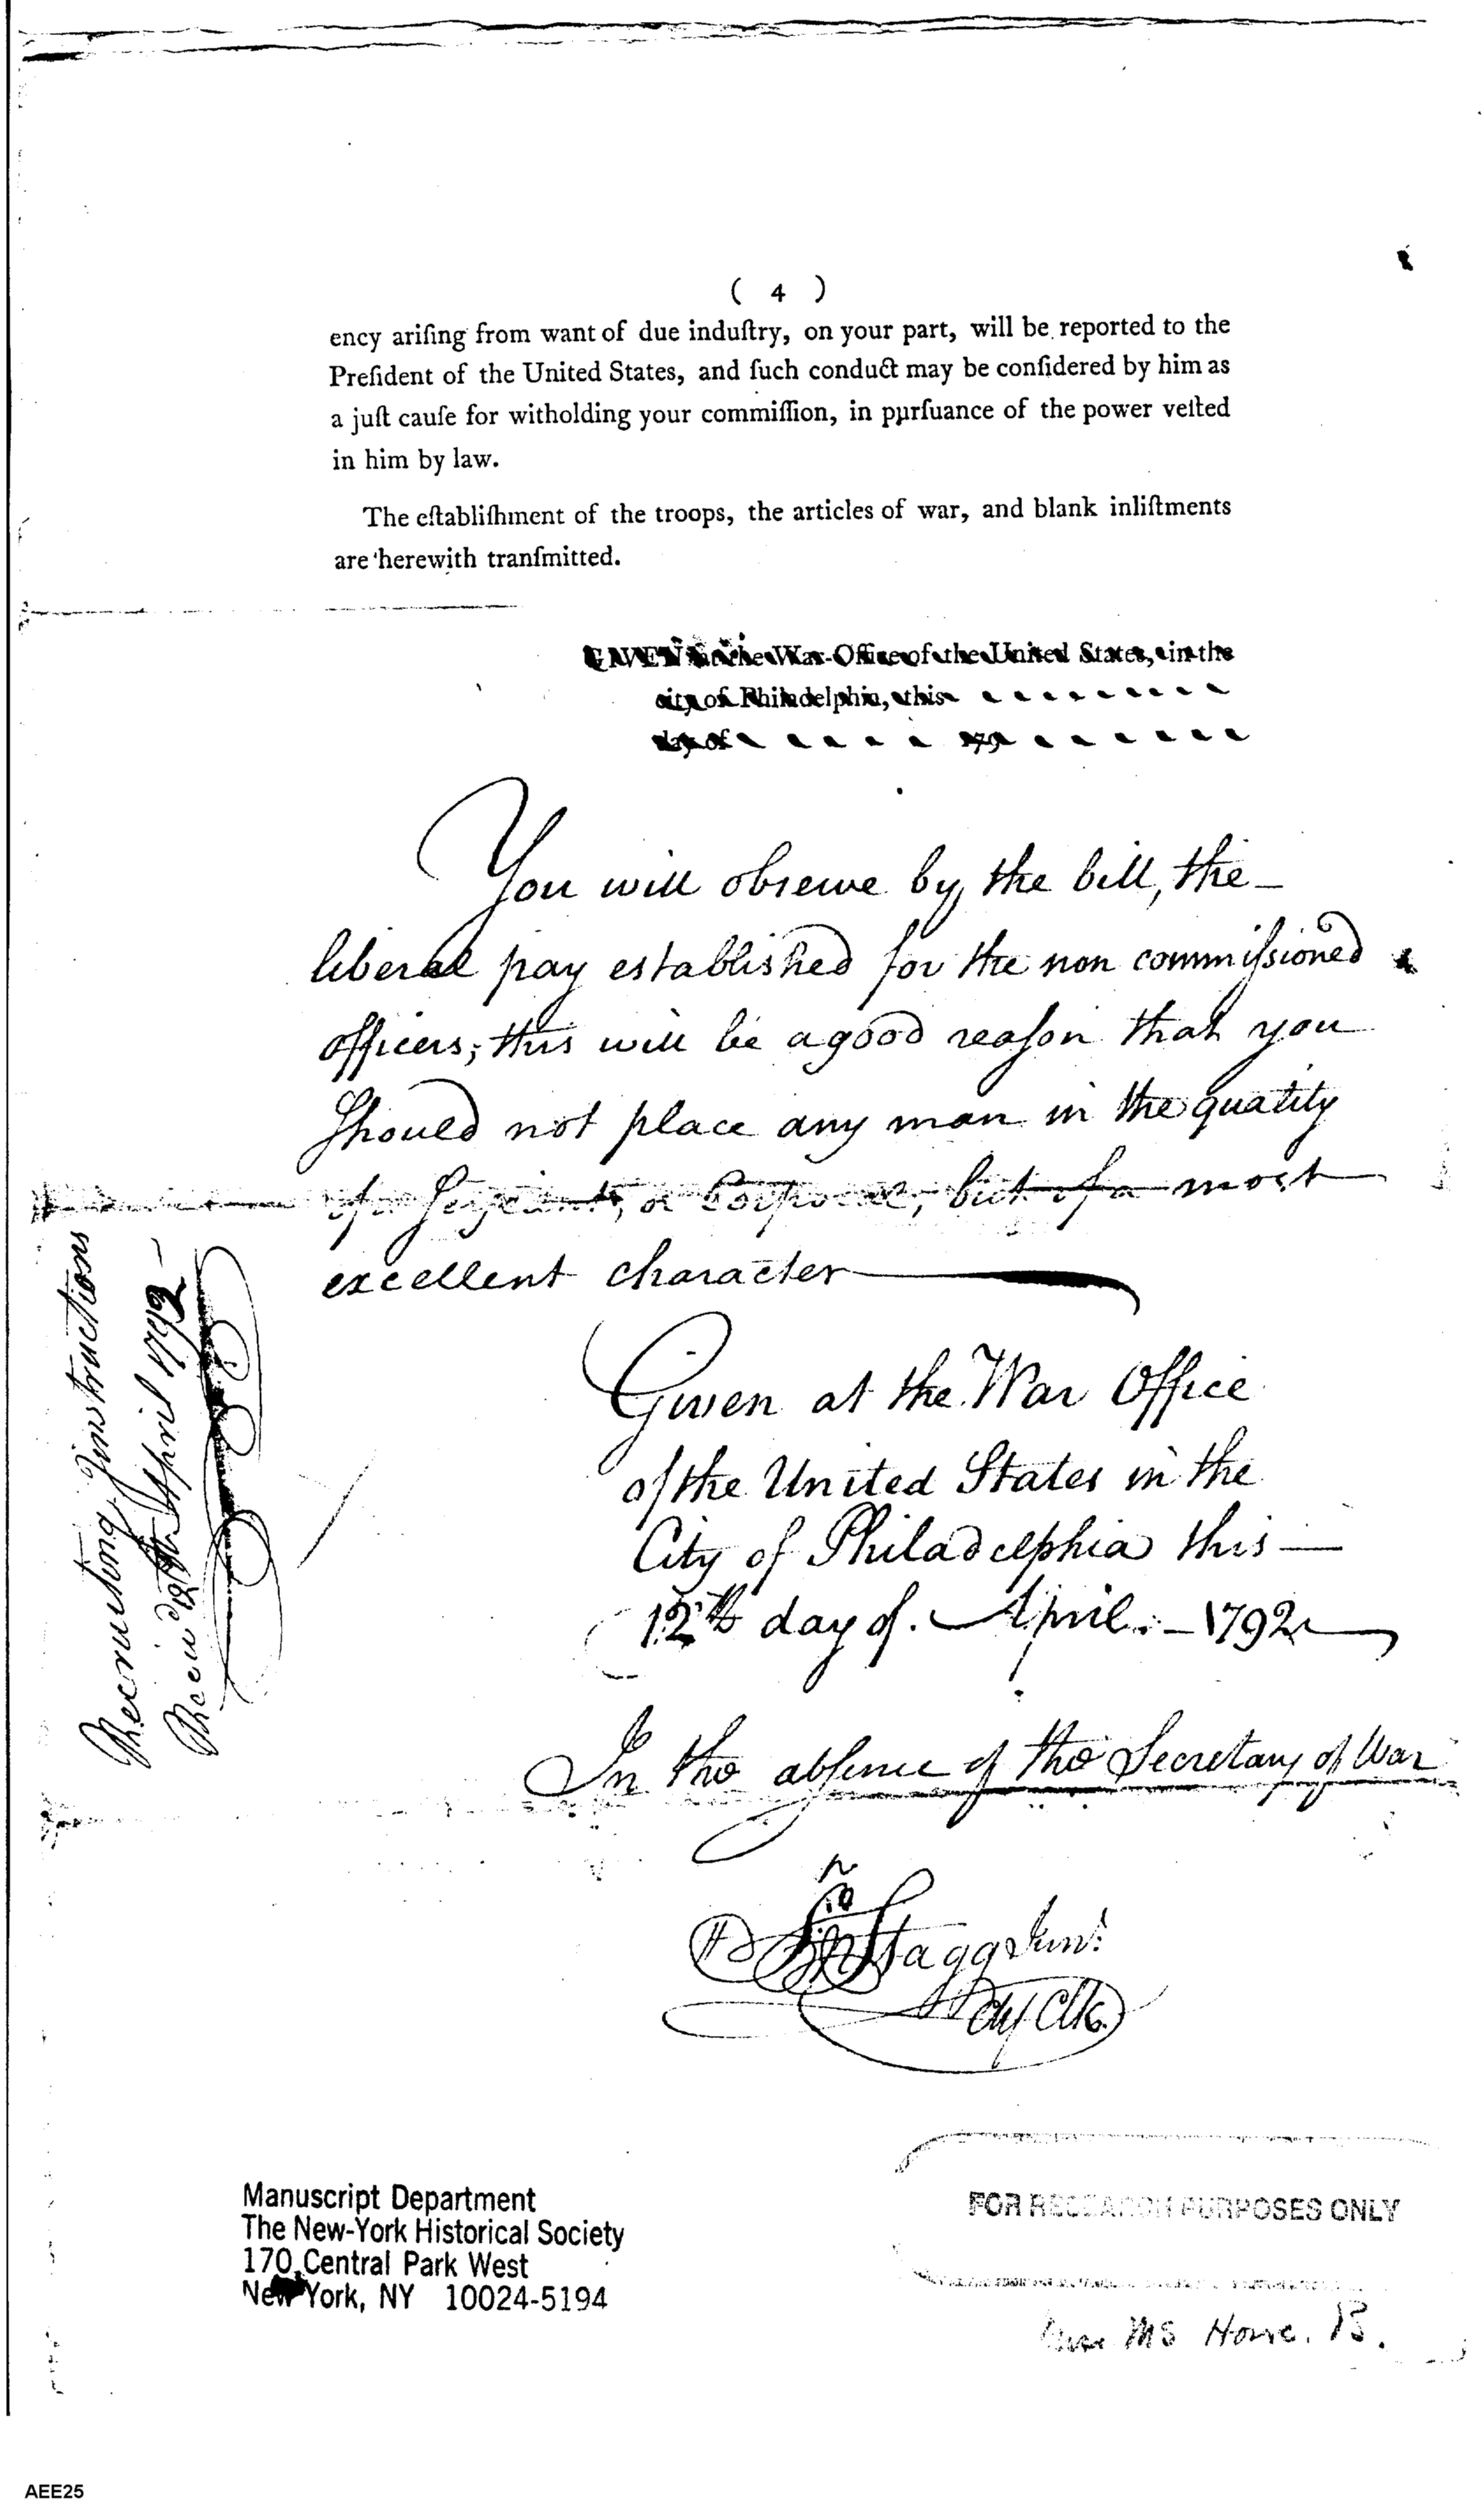 ( 4 )
ency ariſing from want of due induſtry, on your part, will be reported to the
Preſident of the United States, and ſuch conduct may be conſidered by him as
a juſt cauſe for witholding your commiſſion, in purſuance of the power veſted
in him by law.
The eſtabliſhment of the troops, the articles of war, and blank inliſtments
are herewith tranſmitted.
GIVEN at the War-Office of the United States, in the
city of Philadelphia, this
day of 179
You will observe by the bill, the
liberal pay established for the non commiſsioned
officers; this will be a good reaſon that you
Should not place any man in the quality
of a Sergeant, or Corporal, but of a most
excellent character
Given at the War Office
of the United States in the
City of Philadelphia this
12th day of April 1792
In the abſence of the Secretary of War
Jno Stagg Junr.
Clk.
Recruiting Instructions
Receiv'd 12th April 1792
Manuscript Department
The New-York Historical Society
170 Central Park West
New York, NY 10024-5194
FOR RESEARCH PURPOSES ONLY
MS
AEE25